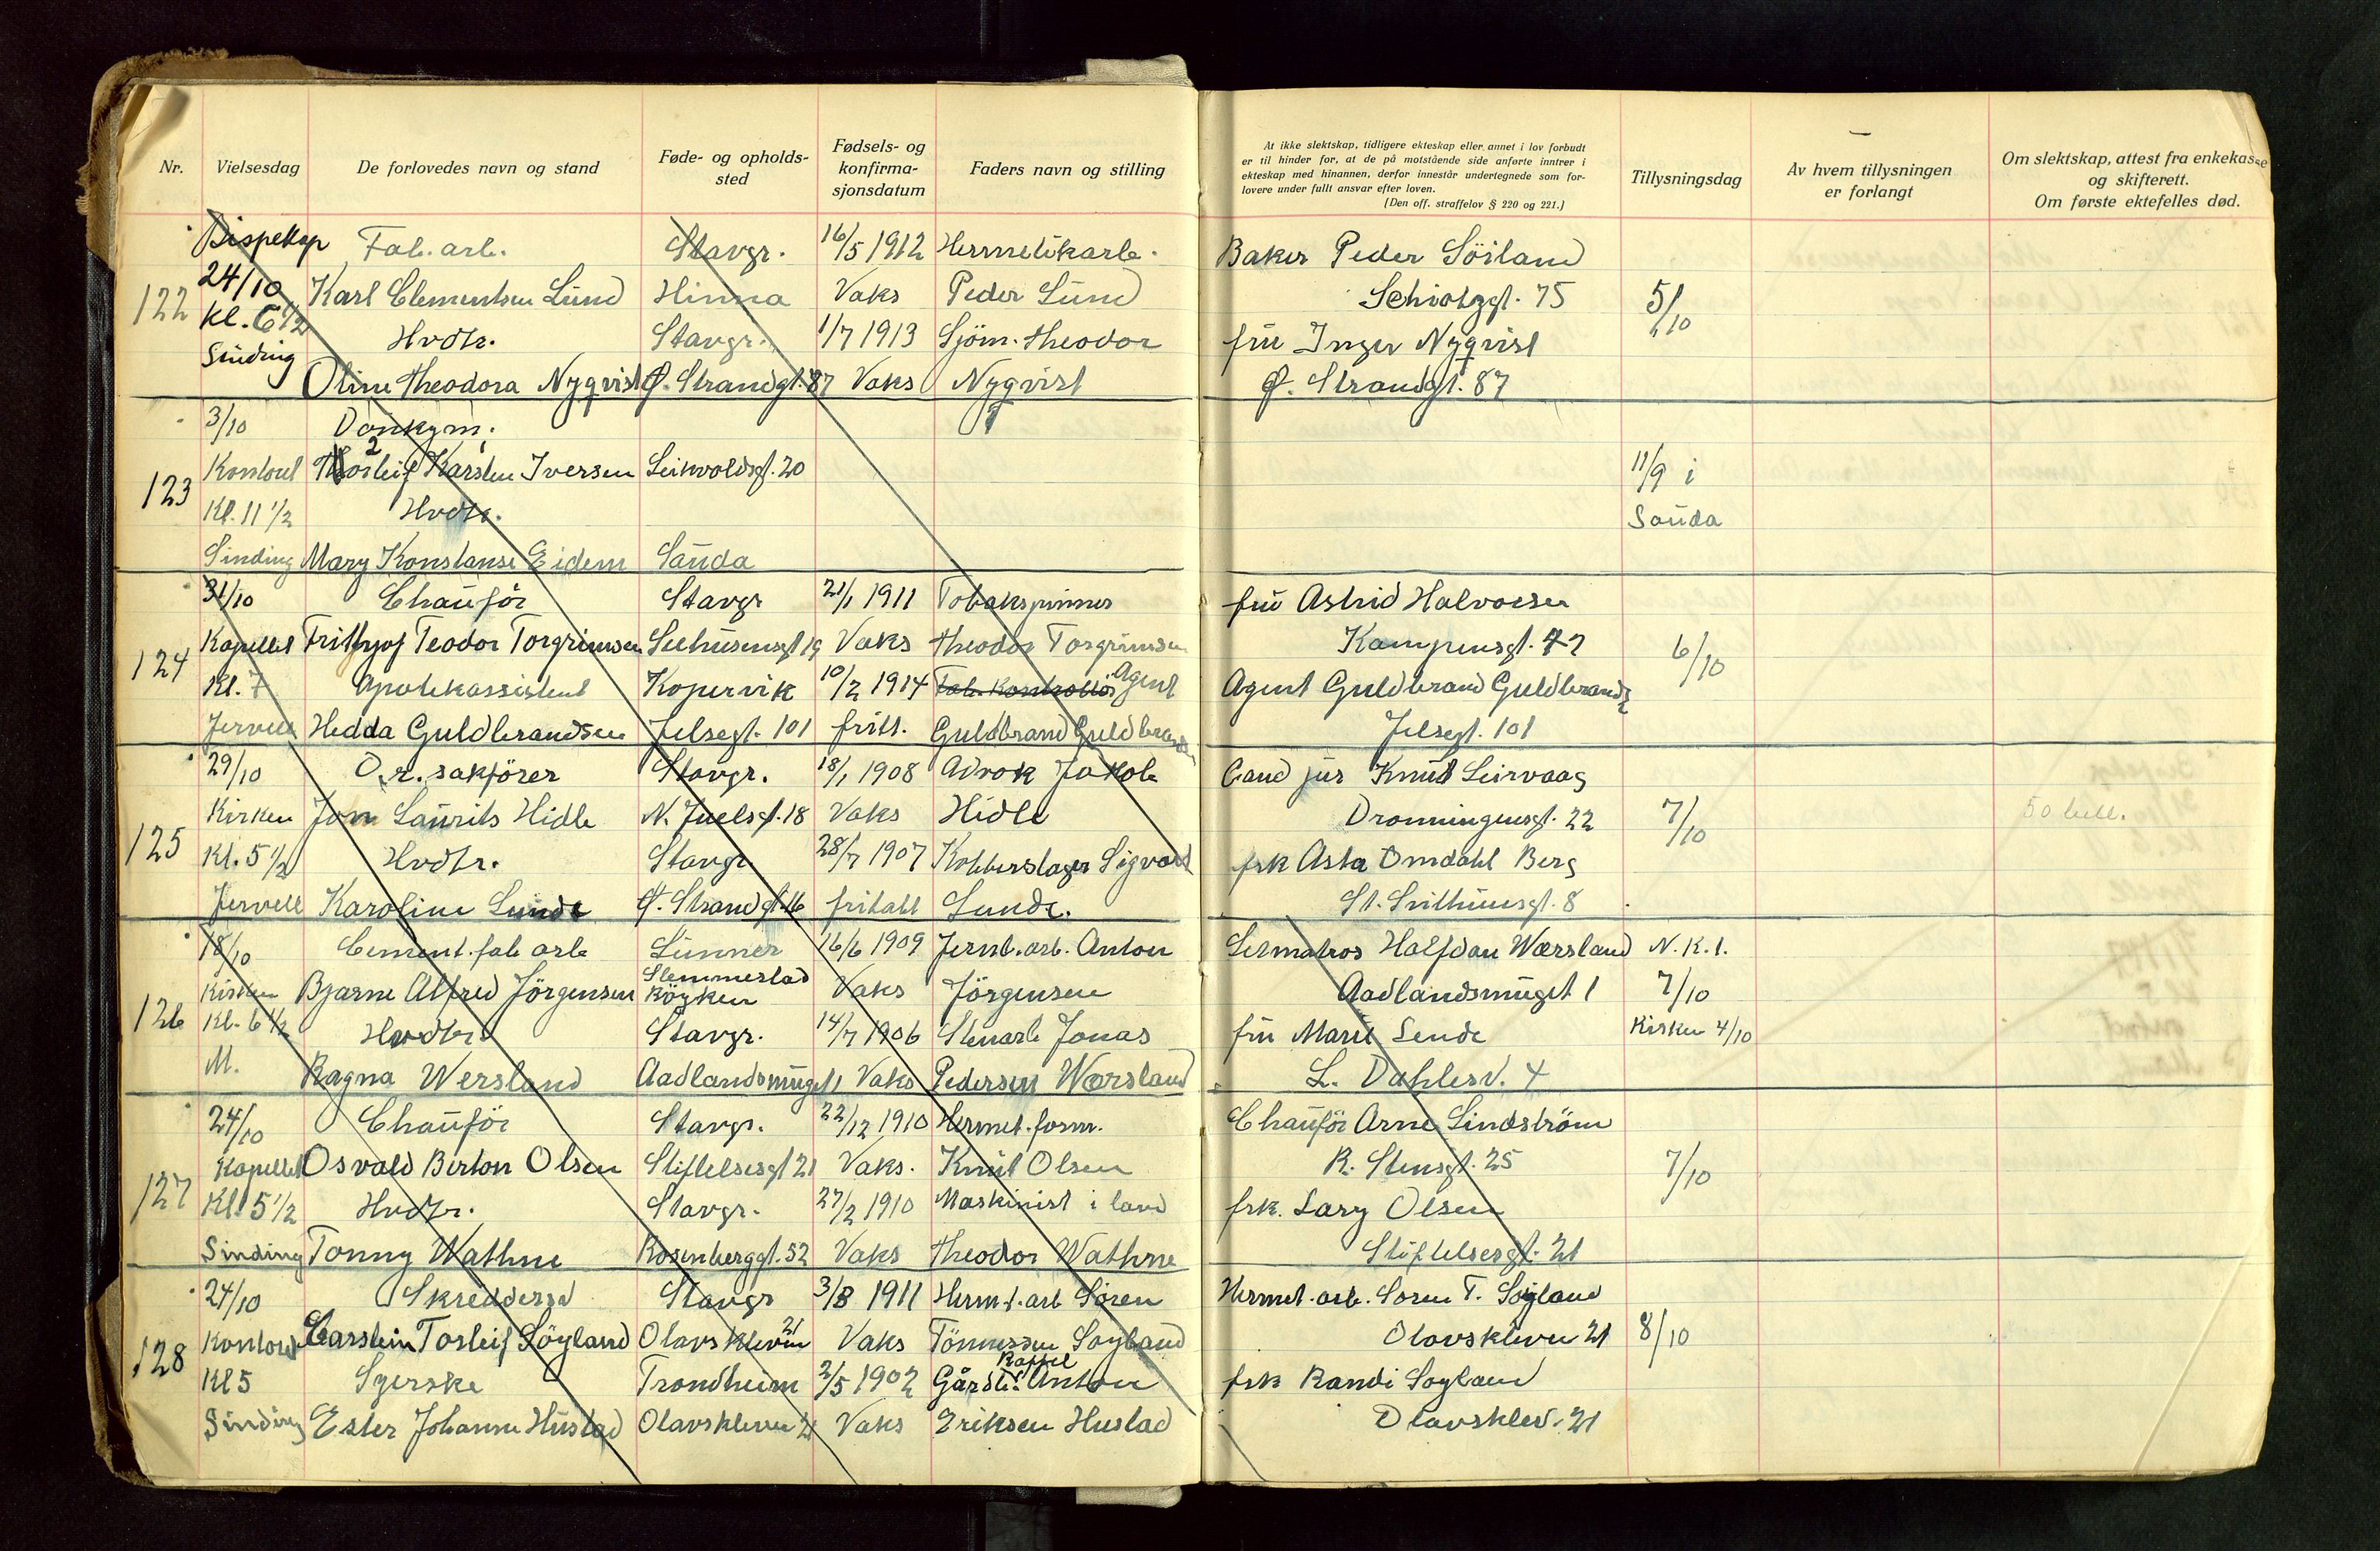 Nr. Vielsesdag De forlovedes navn og stand Føde- og opholds-sted Fødsels- og konfirma-sjonsdatum Faders navn og stilling
At ikke slektskap, tidligere ekteskap eller annet i lov forbudt
er til hinder for, at de på motstående side anførte inntrer i
ekteskap med hinannen, derfor innestår undertegnede som for-
lovere under fullt ansvar efter loven.
(Den off. straffelov § 220 og 221.)
Tillysningsdag
Av hvem tillysningen er forlangt
Om slektskap, attest fra enkekasse
og skifterett.
Om første ektefelles død.
Bispekap Fab. arb. Stavgr. 16/5 1912 Hermetikarb. Baker Peder Söiland
122 24/10 Karl Clementsen Lund Hinna Vaks Peder Lund Schiøtzgt. 75 5/10
Kl. 6 1/2 Hvdtr. Stavgr. 1/7 1913 Sjöm. Theodor fru Inger Nyqvist
Sinding Oline Theodora Nyqvist Ø. Strandgt. 87 Vaks Nyqvist Ø. Strandgt. 87
3/10 Donkym.
123 Kontoret Karsten Iversen 20 11/9 i
Kl. 11 1/2 Hvdtr. Sauda
Sinding Mary Konstanse Eidem Sauda
31/10 Chauför Stavgr 21/1 1911 Tobakspinner fru Astrid Halvorsen
124 Kapellet Frithjof Teodor Torgrimsen Seehusensgt 19 Vaks Theodor Torgrimsen Kampensgt. 6/10
Kl. 7 Apotekassistent Kopervik 10/2 1914 Fab. Kontrollör Agent Agent Guldbrand Guldbrands
Jervell Hedda Guldbrandsen Jelsegt. 101 frits. Guldbrand Guldbrands Jelsegt. 101
29/10 O.r. sakförer Stavgr. 18/1 1908 Advok Jakob Cand jur Knut Leirvaag
125 Kirken Jon Laurits Hidle N. Juelsgt. 18 Vaks Hidle Dronningensgt. 22 7/10 50 bell.
Kl. 5 1/2 Hvdtr. Stavgr 28/7 1907 Kobberslager Sigvard frk Asta Omdahl Berg
Jervell Karoline Lunde Ø. Strandgt. 16 fritatt Lunde. St. Svithunsgt. 8
18/10 Cement. fab arb Lunner 16/6 1909 Jernb. arb. Anton Lermatros Halfdan Wærsland N.K.1.
126 Kirken Bjarne Alfred Jörgensen Slemmestad Röyken Vaks Jörgensen Aadlandsmuget 1 7/10
Kl. 6 1/2 Hvdtr. Stavgr. 14/7 1906 Stenarb Jonas fru Marie Lende Kirken 4/10
M. Ragna Wersland Aadlandsmuget 1 Vaks Pedersen Wærsland L. Dahlesv. 4
24/10 Chauför Stavgr. 22/12 1910 Hermet. form. Chauför Arne Lindström
127 Kapellet Osvald Berton Olsen Stiftelsesgt 21 Vaks. Knut Olsen R. Stensgt. 25 7/10
Kl. 5 1/2 Hvdtr. Stavgr. 27/2 1910 Maskinist i land frk. Lary Olsen
Sinding Tonny Wathne Rosenberggt. 52 Vaks Theodor Wathne Stiftelsesgt. 21
24/10 Skreddersv Stavgr 3/8 1911 Hermt. arb Sören Hermet. arb. Soren T. Soyland
128 Kontoret Carstein Torleif Söyland Olavskleven 21 Vaks Tönnessen Soyland Olavskleven 21 8/10
Kl 5 Syerske Trondheim 2/5 1902 Gårdbr. Anton frk Randi Soyland
Sinding Ester Johanne Hustad Olavskleven 21 Vaks Eriksen Hustad Olavsklev. 21